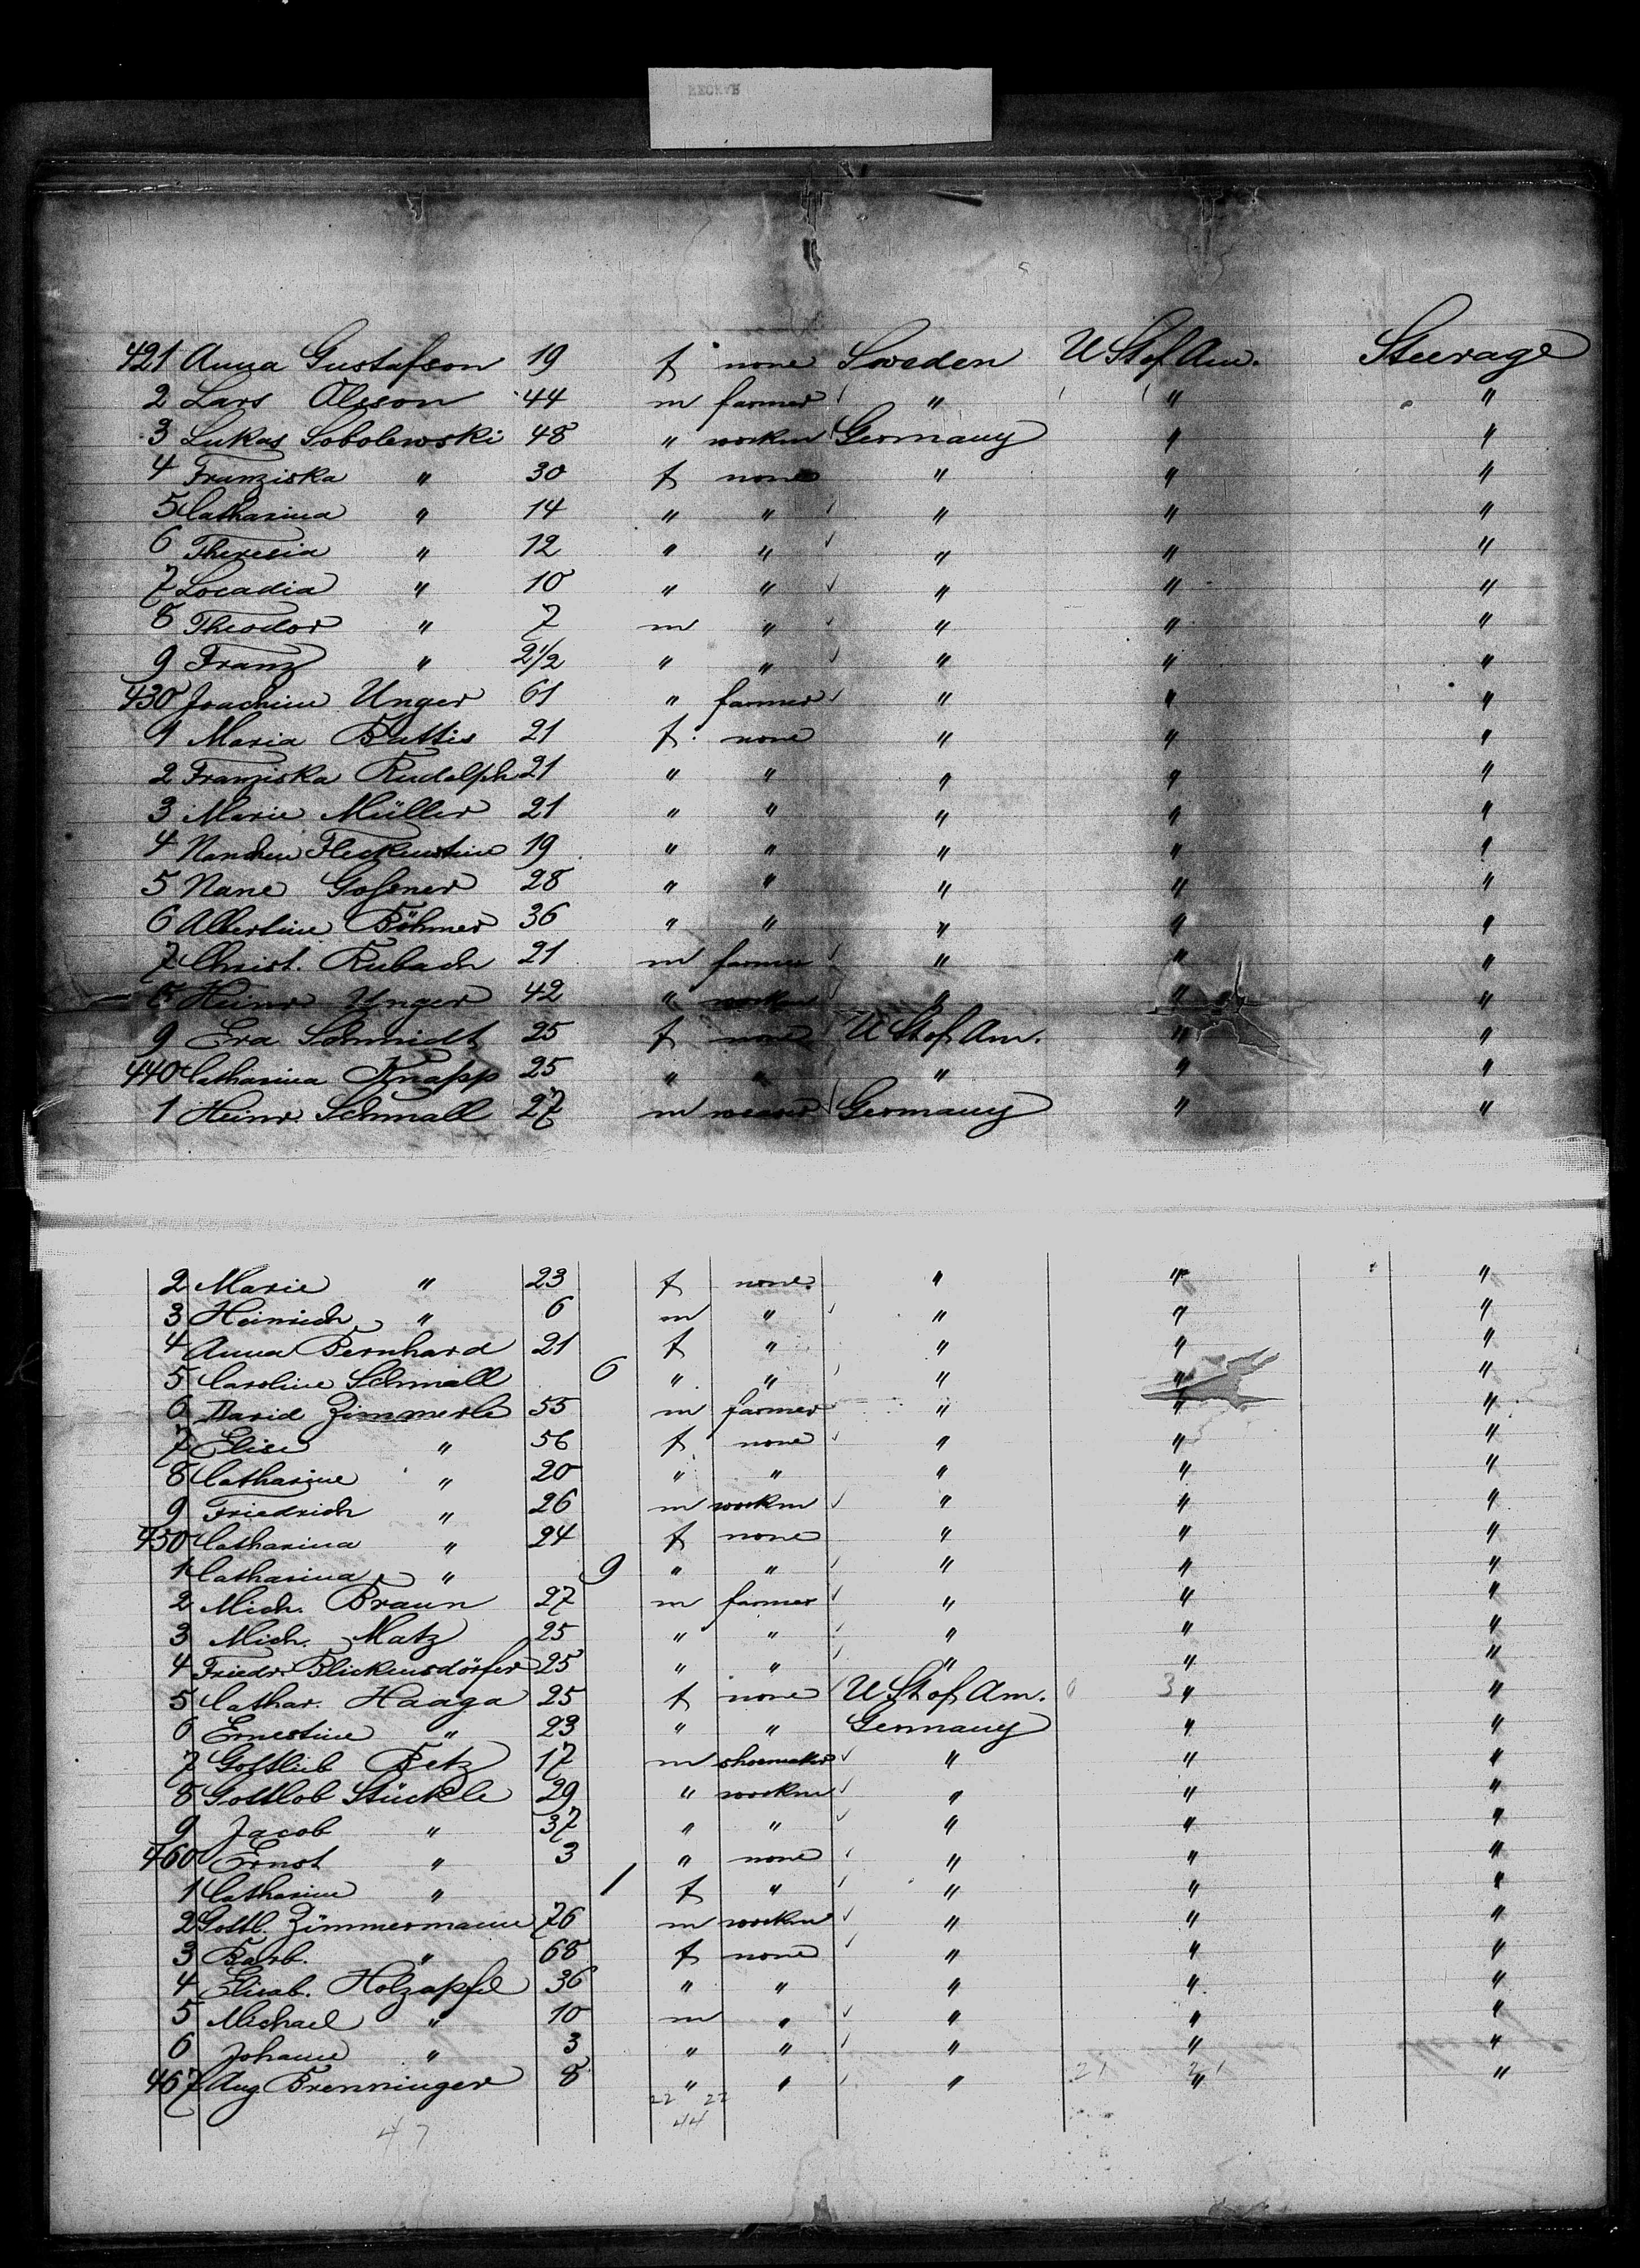 421 Anna Gustafson 19 f none Sweden U St of Am. Steerage
2 Lars Olsson 44 m farmer " " "
3 Lukas Sobolewski 48 " workm Germany " "
4 Franziska " 30 f none " " "
5 Catharina " 14 " " " " "
6 Theresia " 12 " " " " "
7 Locadia " 10 " " " " "
8 Theodor " 7 m " " " "
9 Franz " 2 1/2 " " " " "
430 Joachim Unger 61 " farmer " " "
1 Maria Battis 21 f. none " " "
2 Franziska Rudolph 21 " " " " "
3 Marie Müller 21 " " " " "
4 Nanchen Fleckenstein 19 " " " " "
5 Nane Gossner 28 " " " " "
6 Albertine Böhmer 36 " " " " "
7 Christ. Rubach 21 m farmer " " "
8 Heinr Unger 42 " workm " " "
9 Eva Schmidt 25 f none U St of Am. " "
440 Catharina Knapp 25 " " " " "
1 Heinr. Schmall 27 m weaver Germany " "
2 Marie " 23 f none " " "
3 Heinrich " 6 m " " " "
4 Anna Bernhard 21 f " " " "
5 Caroline Schmall 6 " " " " "
6 David Zimmerle 55 m farmer " " "
7 Elise " 56 f none " " "
8 Catharine " 20 " " " " "
9 Friedrich " 26 m workm " " "
450 Catharina " 24 f none " " "
1 Catharina " 9 " " " " "
2 Mich. Braun 27 m farmer " " "
3 Mich. Matz 25 " " " " "
4 Friedr. Blickensdörfer 25 " " " " "
5 Cathar. Haaga 25 f none U St of Am. 3 " "
6 Ernestine " 23 " " Germany " "
7 Gottlieb Betz 17 m shoemaker " " "
8 Gottlob Stückle 29 " workm " " "
9 Jacob " 37 " " " " "
460 Ernst " 3 " none " " "
1 Catharine " 1 f " " " "
2 Gottl. Zimmermann 76 m workm " " "
3 Barb. " 68 f none " " "
4 Elisab. Holzapfel 36 " " " " "
5 Michael " 10 m " " " "
6 Johann " 3 " " " " "
467 Aug. Brenninger 8 " " " 21 " 21 "
22 22
44
47